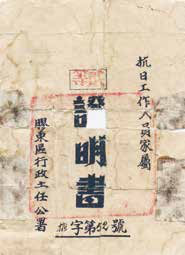 抗日工作人員家屬
證明書
膠東區行政主任公署
字第 號